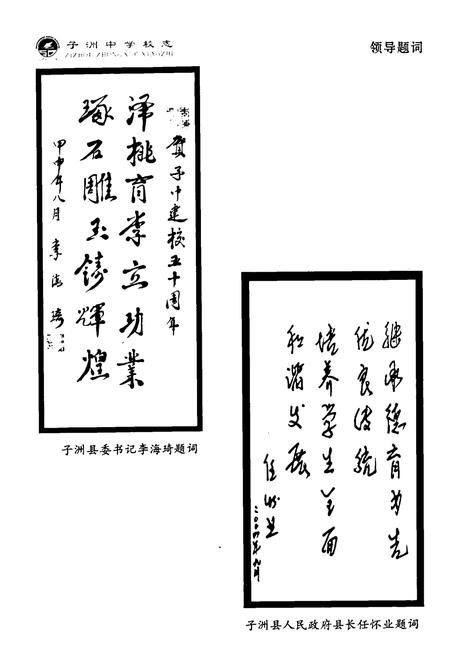 子洲中学校志
ZIZHOU ZHONGXUE XIAOZHI
领导题词
贺子中建校五十周年
泽桃育李立功业
琢石雕玉铸辉煌
甲申年八月 李海琦
子洲县委书记李海琦题词
继承德育为先
优良传统
培养学生全面
和谐发展
任怀业
二〇〇四年九月
子洲县人民政府县长任怀业题词